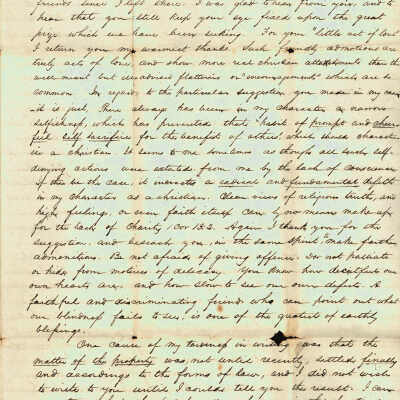 friends since I left there. I was glad to hear from you, and to
hear that you still keep your eye fixed upon the great
prize which we have been seeking. For your "little act of love"
I return you my warmest thanks. Such friendly admonitions are
truly acts of love and show more real christian attachment than the
well meant but injudicious flatteries or "encouragements" which are so
common. In regard to the particular suggestion you made in my case
it is just. There always has been in my character a narrow
selfishness, which has prevented that habit of prompt and cheer-
ful self sacrifice for the benefit of others, which should characterize
a christian. It seems to me sometimes as though all such self-
denying actions were extorted from me by the lash of conscience
if this be the case, it indicates a radical and fundamental defect
in my character as a christian. Clear views of religious truth, and
high feelings, or even faith itself can by no means make up
for the lack of Charity, 1 Cor 13.2. Again I thank you for the
suggestion, and beseech you, in the same spirit, make faithful
admonitions. Be not afraid of giving offence, nor not palliate
or hide from motives of delicacy. You know how deceitful our
own hearts are, and how slow to see our own defects. A
faithful and discriminating friend who can point out what
our blindness fails to see, is one of the greatest of earthly
blessings.
One cause of my tardiness in writing was that the
matter of the property was not until recently, settled finally
and according to the forms of law, and I did not wish
to write to you until I could tell you the result. I can